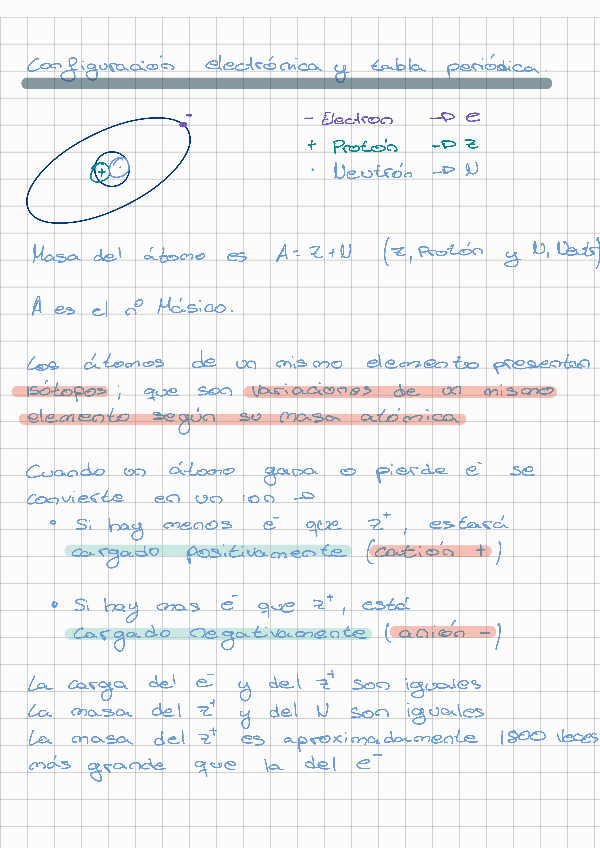 Configuración electrónica y tabla periódica.
- Electron → e
+ Protón → z
· Neutrón → N
Masa del átomo es A = Z + N (z, Protón y N, Neut
A es el nº Másico.
Los átomos de un mismo elemento presentan
isótopos; que son variaciones de un mismo
elemento según su masa atómica
Cuando un átomo gana o pierde e⁻ se
convierte en un ion →
• Si hay menos e⁻ que z⁺, estará
cargado positivamente (catión +)
• Si hay mas e⁻ que z⁺, está
cargado negativamente (anión -)
La carga del e⁻ y del z⁺ son iguales
La masa del z⁺ y del N son iguales
La masa del z⁺ es aproximadamente 1800 veces
más grande que la del e⁻